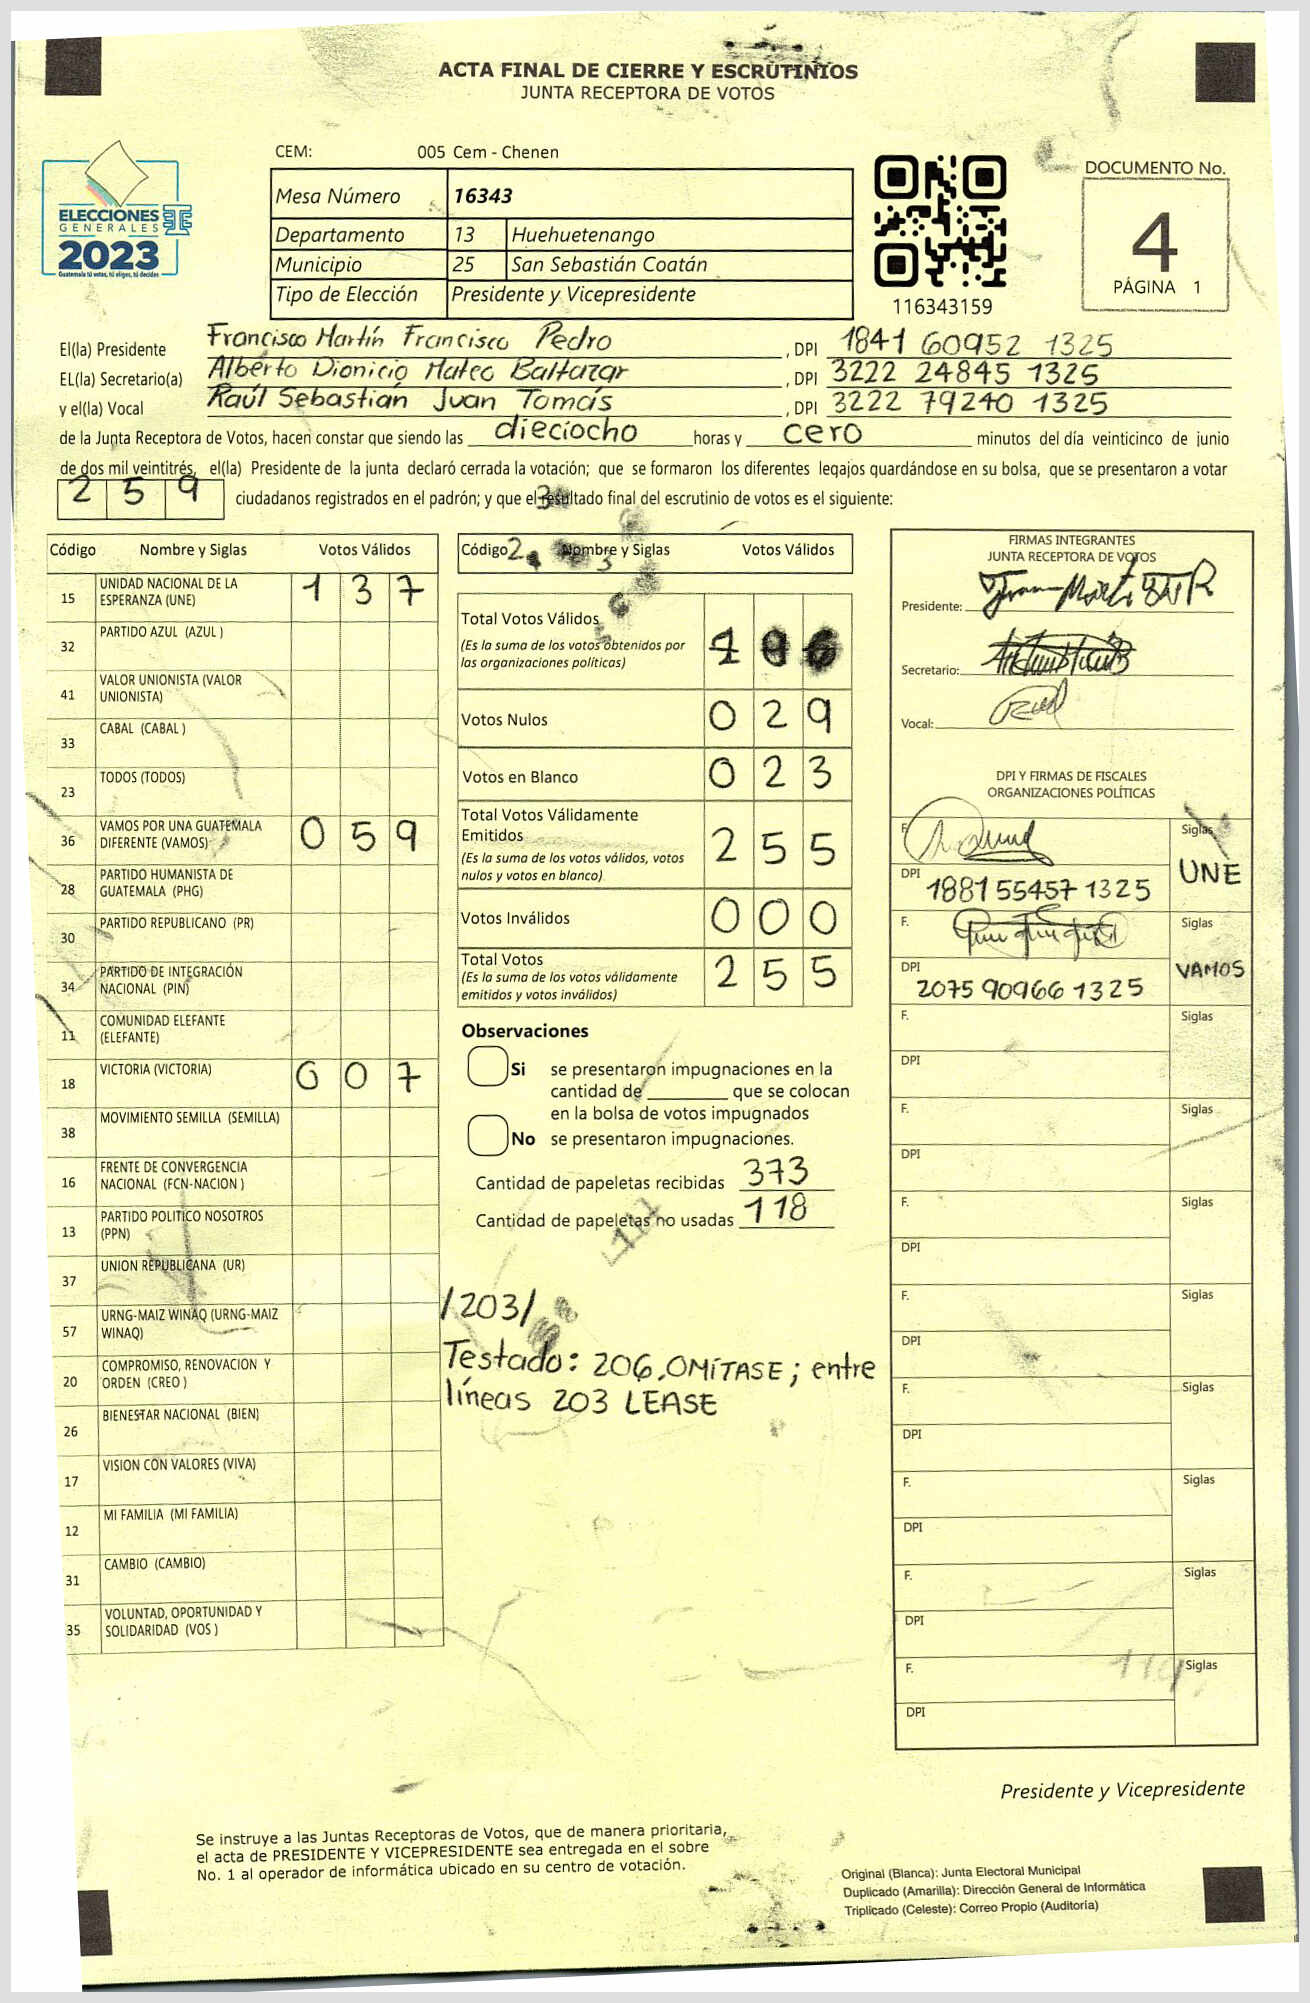 ACTA FINAL DE CIERRE Y ESCRUTINIOS
JUNTA RECEPTORA DE VOTOS
ELECCIONES
GENERALES
2023
Guatemala tú votas, tú eliges, tú decides
CEM: 005 Cem - Chenen
Mesa Número 16343
Departamento 13 Huehuetenango
Municipio 25 San Sebastián Coatán
Tipo de Elección Presidente y Vicepresidente
116343159
DOCUMENTO No.
4
PÁGINA 1
El(la) Presidente Francisco Martín Francisco Pedro , DPI 1841 60952 1325
EL(la) Secretario(a) Alberto Dionicio Mateo Baltazar , DPI 3222 24845 1325
y el(la) Vocal Raúl Sebastián Juan Tomás , DPI 3222 79240 1325
de la Junta Receptora de Votos, hacen constar que siendo las dieciocho horas y cero minutos del día veinticinco de junio
de dos mil veintitrés, el(la) Presidente de la junta declaró cerrada la votación; que se formaron los diferentes legajos guardándose en su bolsa, que se presentaron a votar
259 ciudadanos registrados en el padrón; y que el resultado final del escrutinio de votos es el siguiente:
Código Nombre y Siglas Votos Válidos
15 UNIDAD NACIONAL DE LA
ESPERANZA (UNE) 137
32 PARTIDO AZUL (AZUL )
41 VALOR UNIONISTA (VALOR
UNIONISTA)
33 CABAL (CABAL )
23 TODOS (TODOS)
36 VAMOS POR UNA GUATEMALA
DIFERENTE (VAMOS) 059
28 PARTIDO HUMANISTA DE
GUATEMALA (PHG)
30 PARTIDO REPUBLICANO (PR)
34 PARTIDO DE INTEGRACIÓN
NACIONAL (PIN)
11 COMUNIDAD ELEFANTE
(ELEFANTE)
18 VICTORIA (VICTORIA) 007
38 MOVIMIENTO SEMILLA (SEMILLA)
16 FRENTE DE CONVERGENCIA
NACIONAL (FCN-NACION )
13 PARTIDO POLITICO NOSOTROS
(PPN)
37 UNION REPUBLICANA (UR)
57 URNG-MAIZ WINAQ (URNG-MAIZ
WINAQ)
20 COMPROMISO, RENOVACION Y
ORDEN (CREO )
26 BIENESTAR NACIONAL (BIEN)
17 VISION CON VALORES (VIVA)
12 MI FAMILIA (MI FAMILIA)
31 CAMBIO (CAMBIO)
35 VOLUNTAD, OPORTUNIDAD Y
SOLIDARIDAD (VOS )
Código Nombre y Siglas Votos Válidos
Total Votos Válidos
(Es la suma de los votos obtenidos por
las organizaciones políticas)
Votos Nulos 029
Votos en Blanco 023
Total Votos Válidamente
Emitidos 255
(Es la suma de los votos válidos, votos
nulos y votos en blanco)
Votos Inválidos 000
Total Votos 255
(Es la suma de los votos válidamente
emitidos y votos inválidos)
Observaciones
Si se presentaron impugnaciones en la
cantidad de ________ que se colocan
en la bolsa de votos impugnados
No se presentaron impugnaciones.
Cantidad de papeletas recibidas 373
Cantidad de papeletas no usadas 118
/203/
Testado: 206, OMÍTASE; entre
líneas 203 LEASE
FIRMAS INTEGRANTES
JUNTA RECEPTORA DE VOTOS
Presidente:
Secretario:
Vocal:
DPI Y FIRMAS DE FISCALES
ORGANIZACIONES POLÍTICAS
F. Siglas
DPI 1881 55457 1325 UNE
F. Siglas
DPI 2075 90966 1325 VAMOS
F. Siglas
DPI
F. Siglas
DPI
F. Siglas
DPI
F. Siglas
DPI
F. Siglas
DPI
F. Siglas
DPI
F. Siglas
DPI
F. Siglas
DPI
Presidente y Vicepresidente
Se instruye a las Juntas Receptoras de Votos, que de manera prioritaria,
el acta de PRESIDENTE Y VICEPRESIDENTE sea entregada en el sobre
No. 1 al operador de informática ubicado en su centro de votación.
Original (Blanca): Junta Electoral Municipal
Duplicado (Amarilla): Dirección General de Informática
Triplicado (Celeste): Correo Propio (Auditoría)